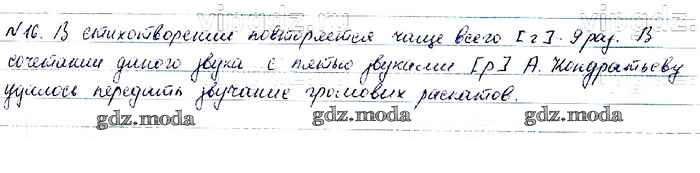 №16. В стихотворении повторяется чаще всего [г]. 9 раз. В
сочетании данного звука с пятью звуками [р] А. Кондратьеву
удалось передать звучание громовых раскатов.
gdz.moda gdz.moda gdz.moda